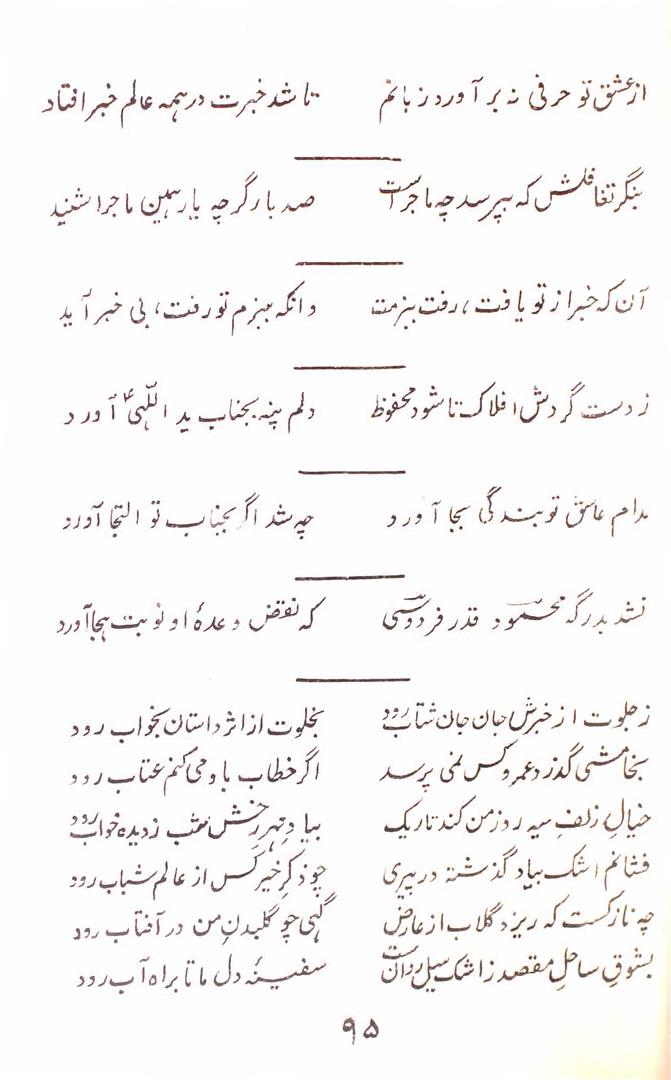 از عشق تو حرفی نه بر آورد زبانم تا شد خبرت در همه عالم خبر افتاد
بنگر تغافلش که بپرسد چه ماجراست صد بار گرچه یار همین ماجرا شنید
آن که خبر از تو یافت، رفت بزمت وانکه ببزم تو رفت، بی خبر آید
ز دست گردش افلاک تا شود محفوظ دلم پنه بجناب ید اللہی آورد
مدام عاشق تو بندگی بجا آورد چه شد اگر بجناب تو التجا آورد
نشد بدرگه محمود قدر فردوسی که نقض وعدهٔ او نوبت هجا آورد
ز جلوت از خبرش جان جان شتاب رود بخلوت از اثر داستان بخواب رود
بخامشی گذرد عمر و کس نمی پرسد اگر خطاب باو می کنم عتاب رود
خیالِ زلفِ سیه روز من کند تاریک بیادِ مهرِ رخش شب ز دیده خواب رود
فشانم اشک بیاد گذشتہ در پیری چو ذکرِ خیر کس از عالم شباب رود
چه نازکست که ریزد گلاب از عارض گهی چو گلبدنِ من در آفتاب رود
بشوقِ ساحلِ مقصد ز اشک سیل روانست سفینهٔ دل ما تا براه آب رود
۹۵